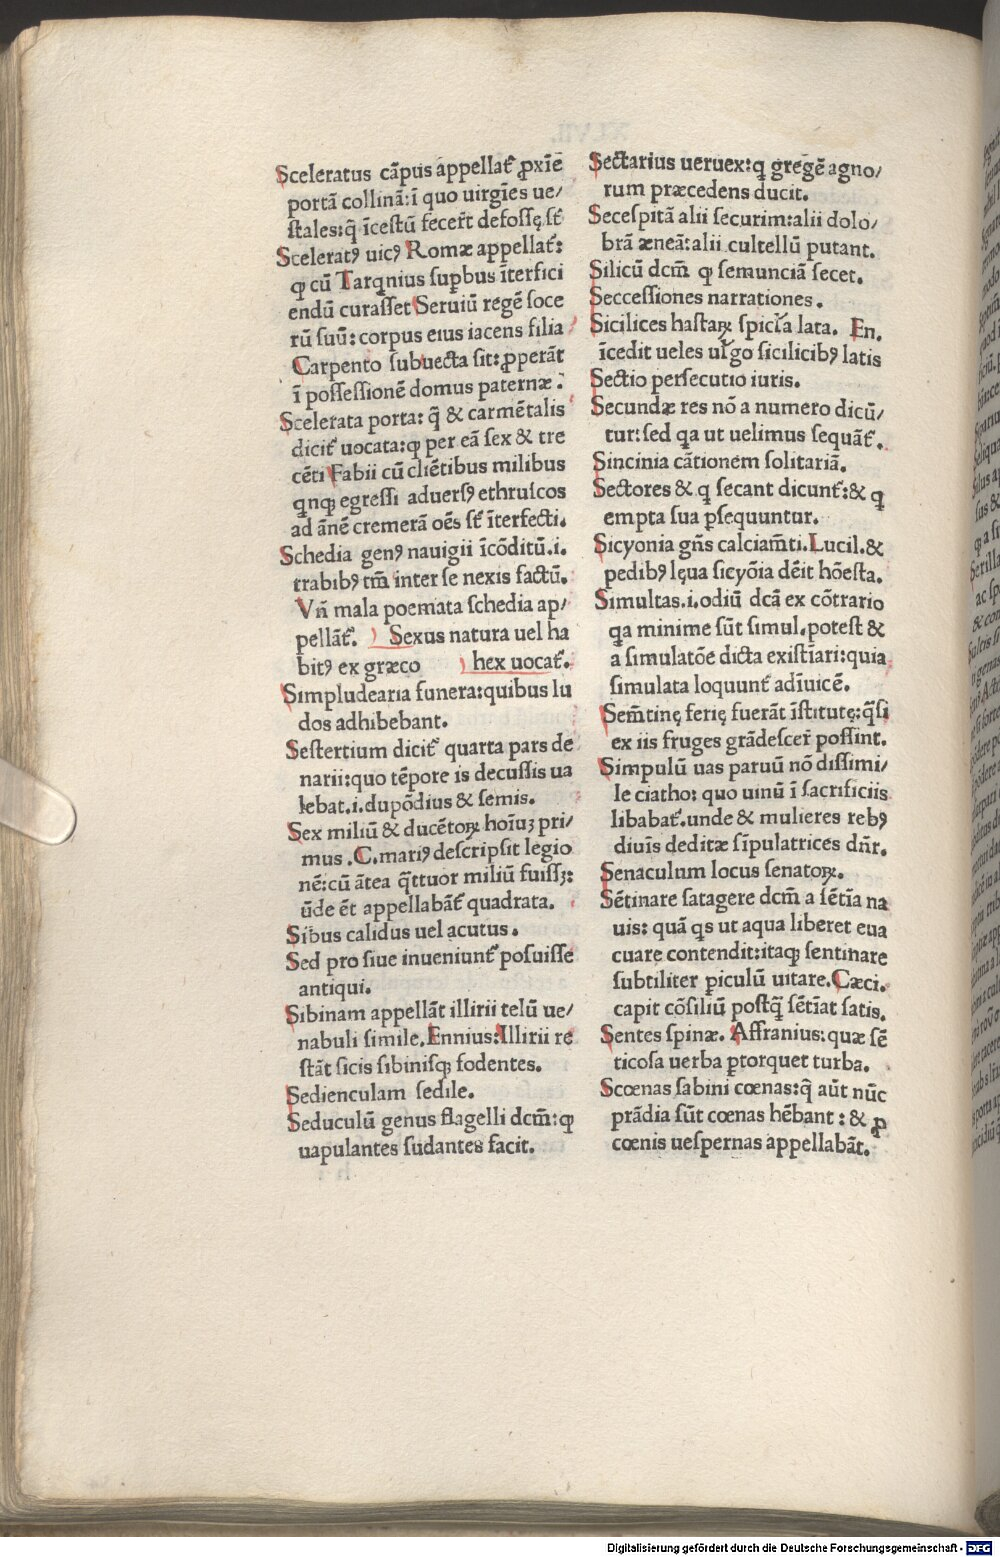 Sceleratus cãpus appellat᷑ ꝓxiẽ
portã collinã:ĩ quo uirgĩes ue/
stales:q̃ ĩcestũ fecer̃t defossę st̃
Scelerat⁹ uic⁹ Romæ appellat᷑:
ꝙ cũ Tarqnius suꝑbus ĩterfici
endũ curasset Seruiũ regẽ soce
rũ suũ:corpus eius iacens filia
Carpento subuecta sit:ꝓperãt
ĩ possessionẽ domus paternæ:
Scelerata porta: q̃ & carmẽtalis
dicit᷑ uocata:ꝙ per eã sex & tre
cẽti Fabii cũ cliẽtibus milibus
qnqꝫ egressi aduers⁹ ethruscos
ad ãnẽ cremerã oẽs st̃ ĩterfecti.
Schedia gen⁹ nauigii ĩcõditũ.i.
trabib⁹ tm̃ inter se nexis factũ.
Vñ mala poemata schedia ap/
pellãt᷑. ) Sexus natura uel ha
bit⁹ ex græco ) hex uocat᷑.
Simpludearia funera:quibus lu
dos adhibebant.
Sestertium dicit᷑ quarta pars de
narii:quo tẽpore is decussis ua
lebat.i.dupõdius & semis.
Sex miliũ & ducẽtoꝝ hoĩuꝫ pri/
mus .C.mari⁹ descripsit legio
nẽ:cũ ãtea q̃ttuor miliũ fuissꝫ:
ũde ẽt appellabãt᷑ quadrata.
Sibus calidus uel acutus.
Sed pro siue inueniunt᷑ posuisse
antiqui.
Sibinam appellãt illirii telũ ue/
nabuli simile.Ennius:Illirii re
stãt sicis sibinisqꝫ fodentes.
Sedienculam sedile.
Seduculũ genus flagelli dcm̃:ꝙ
uapulantes sudantes facit.
Sectarius ueruex:q gregẽ agno/
rum præcedens ducit.
Secespitã alii securim:alii dolo/
brã æneã:alii cultellũ putant.
Silicũ dcm̃ ꝙ semunciã secet.
Seccessiones narrationes.
Sicilices hastaꝝ spicľa lata. En.
ĩcedit ueles uľgo sicilicib⁹ latis
Sectio persecutio iuris.
Secundæ res nõ a numero dicũ/
tur:sed qa ut uelimus sequãt᷑.
Sincinia cãtionem solitariã.
Sectores & q secant dicunt᷑:& q
empta sua ꝑsequuntur.
Sicyonia gñs calciam̃ti.Lucil.&
pedib⁹ lęua sicyõia dẽit hõesta.
Simultas.i.odiũ dcã ex cõtrario
qa minime sũt simul.potest &
a simulatõe dicta existĩari:quia
simulata loquunt᷑ adĩuicẽ.
Sem̃tinę ferię fuerãt ĩstitutę:q̃si
ex iis fruges grãdescer̃ possint.
Simpulũ uas paruũ nõ dissimi/
le ciatho: quo uinũ ĩ sacrificiis
libabat᷑.unde & mulieres reb⁹
diuis deditæ sĩpulatrices dñr.
Senaculum locus senatoꝝ.
Sẽtinare satagere dcm̃ a sẽtia na
uis: quã qs ut aqua liberet eua
cuare contendit:itaqꝫ sentinare
subtiliter ꝑiculũ uitare.Cæci.
capit cõsiliũ postq̃ sẽtĩat satis.
Sentes spinæ. Affranius:quæ sẽ
ticosa uerba ꝑtorquet turba.
Scœnas sabini cœnas:q̃ aũt nũc
prãdia sũt cœnas hẽbant:& ꝓ
cœnis uespernas appellabãt.
Digitalisierung gefördert durch die Deutsche Forschungsgemeinschaft - DFG